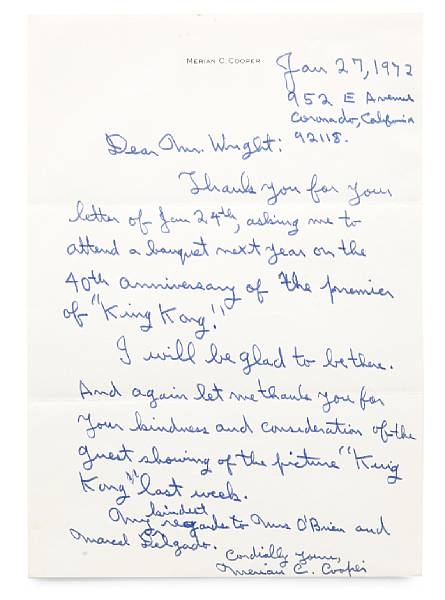 MERIAN C. COOPER
Jan 27, 1972
952 E Avenue
Coronado, California
92118.
Dear Mr. Wright:
Thank you for your
letter of Jan 24th, asking me to
attend a banquet next year on the
40th anniversary of the premier
of "King Kong."
I will be glad to be there.
And again let me thank you for
your kindness and consideration of the
guest showing of the picture "King
Kong" last week.
My kindest regards to Mrs O'Brien and
Marcel Delgado.
Cordially yours,
Merian C. Cooper